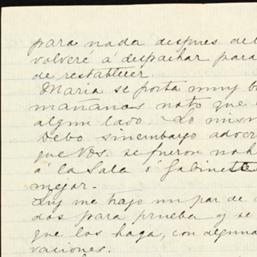 para nada despues de
volveré á despachar para
de restablecer.
Maria se porta muy b
mañanas noto que
algun lado. Lo mism
debo sinembargo
que Vds. se fueron no h
á la Sala o Gabinete
mejor.
Luz me hajo un par de
dos para prueba y se
que los haga, con alguna
vaciones.